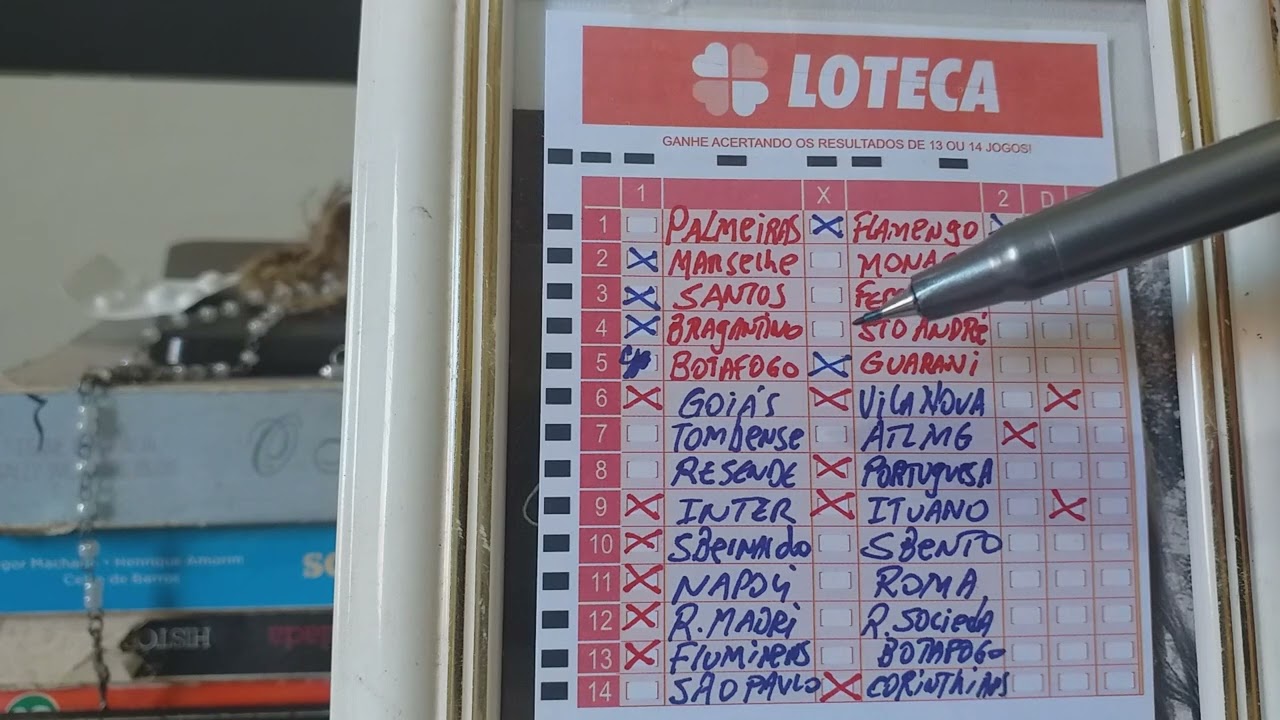 LOTECA
GANHE ACERTANDO OS RESULTADOS DE 13 OU 14 JOGOS!
1 X 2 D
1 PALMEIRAS X FLAMENGO
2 X MARSELHE
3 X SANTOS
4 X BRAGANTINO STO ANDRÉ
5 BOTAFOGO X GUARANI
6 X GOIÁS X VILA NOVA X
7 TOMBENSE ATLMG X
8 RESENDE X PORTUGUESA
9 X INTER X ITUANO X
10 X SBERNARDO SBENTO
11 X NAPOLI ROMA
12 X R. MADRI R. SOCIEDA
13 X FLUMINENS BOTAFOGO
14 SÃO PAULO X CORINTHIANS
gor Macha • Henrique Amorim
de Barros
HISTO